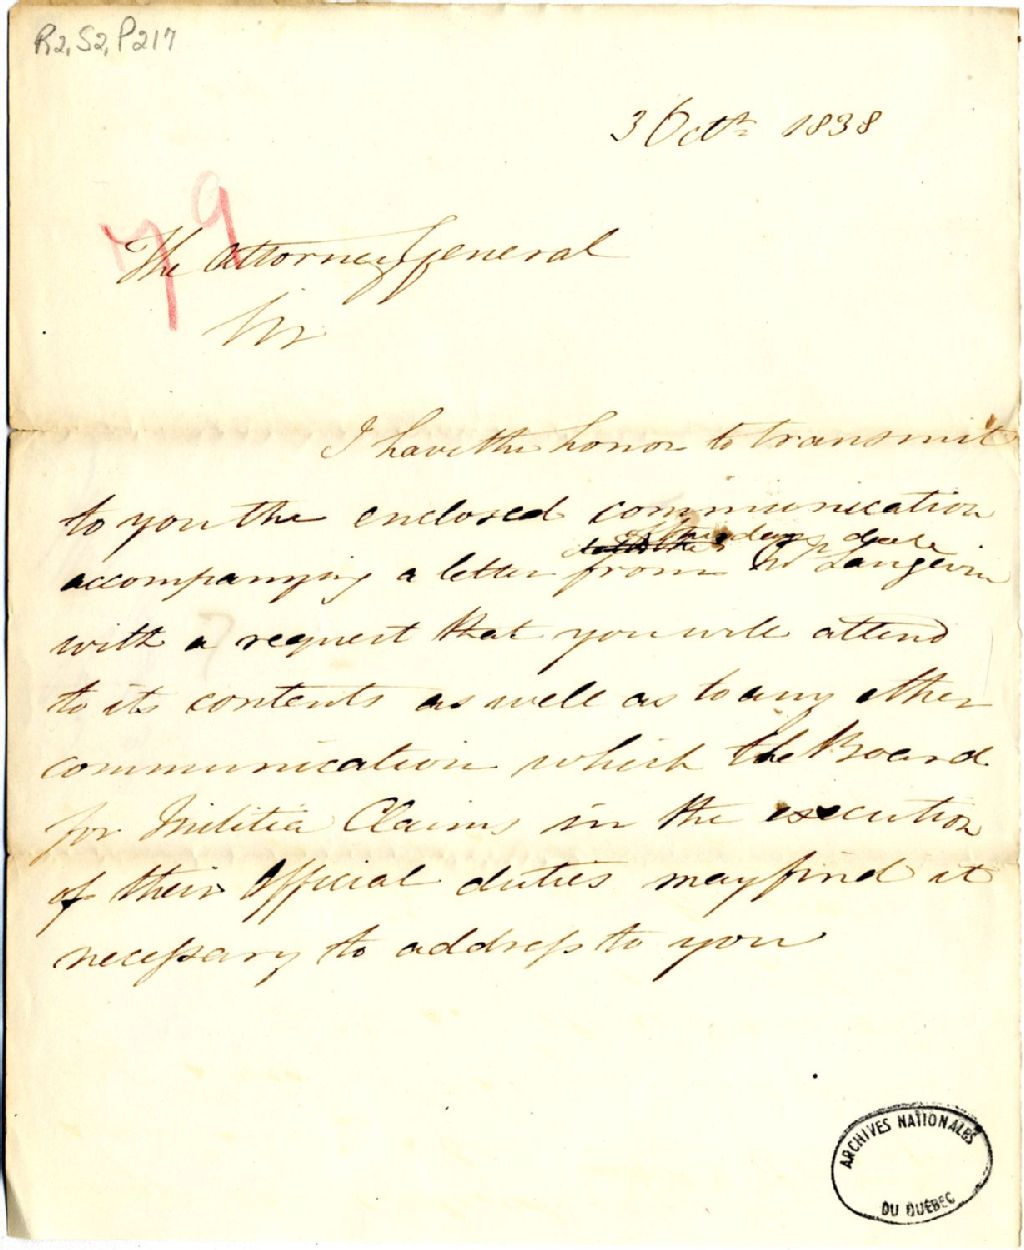 R2, S2, P217
3 Octr 1838
79
The Attorney General
Sir
I have the honor to transmit
to you the enclosed communication
of this days date
accompanying a letter from Mr Langevin
with a request that you will attend
to its contents as well as to any other
communication which the Board
for Militia Claims in the execution
of their Official duties may find it
necessary to address to you
ARCHIVES NATIONALES
DU QUÉBEC